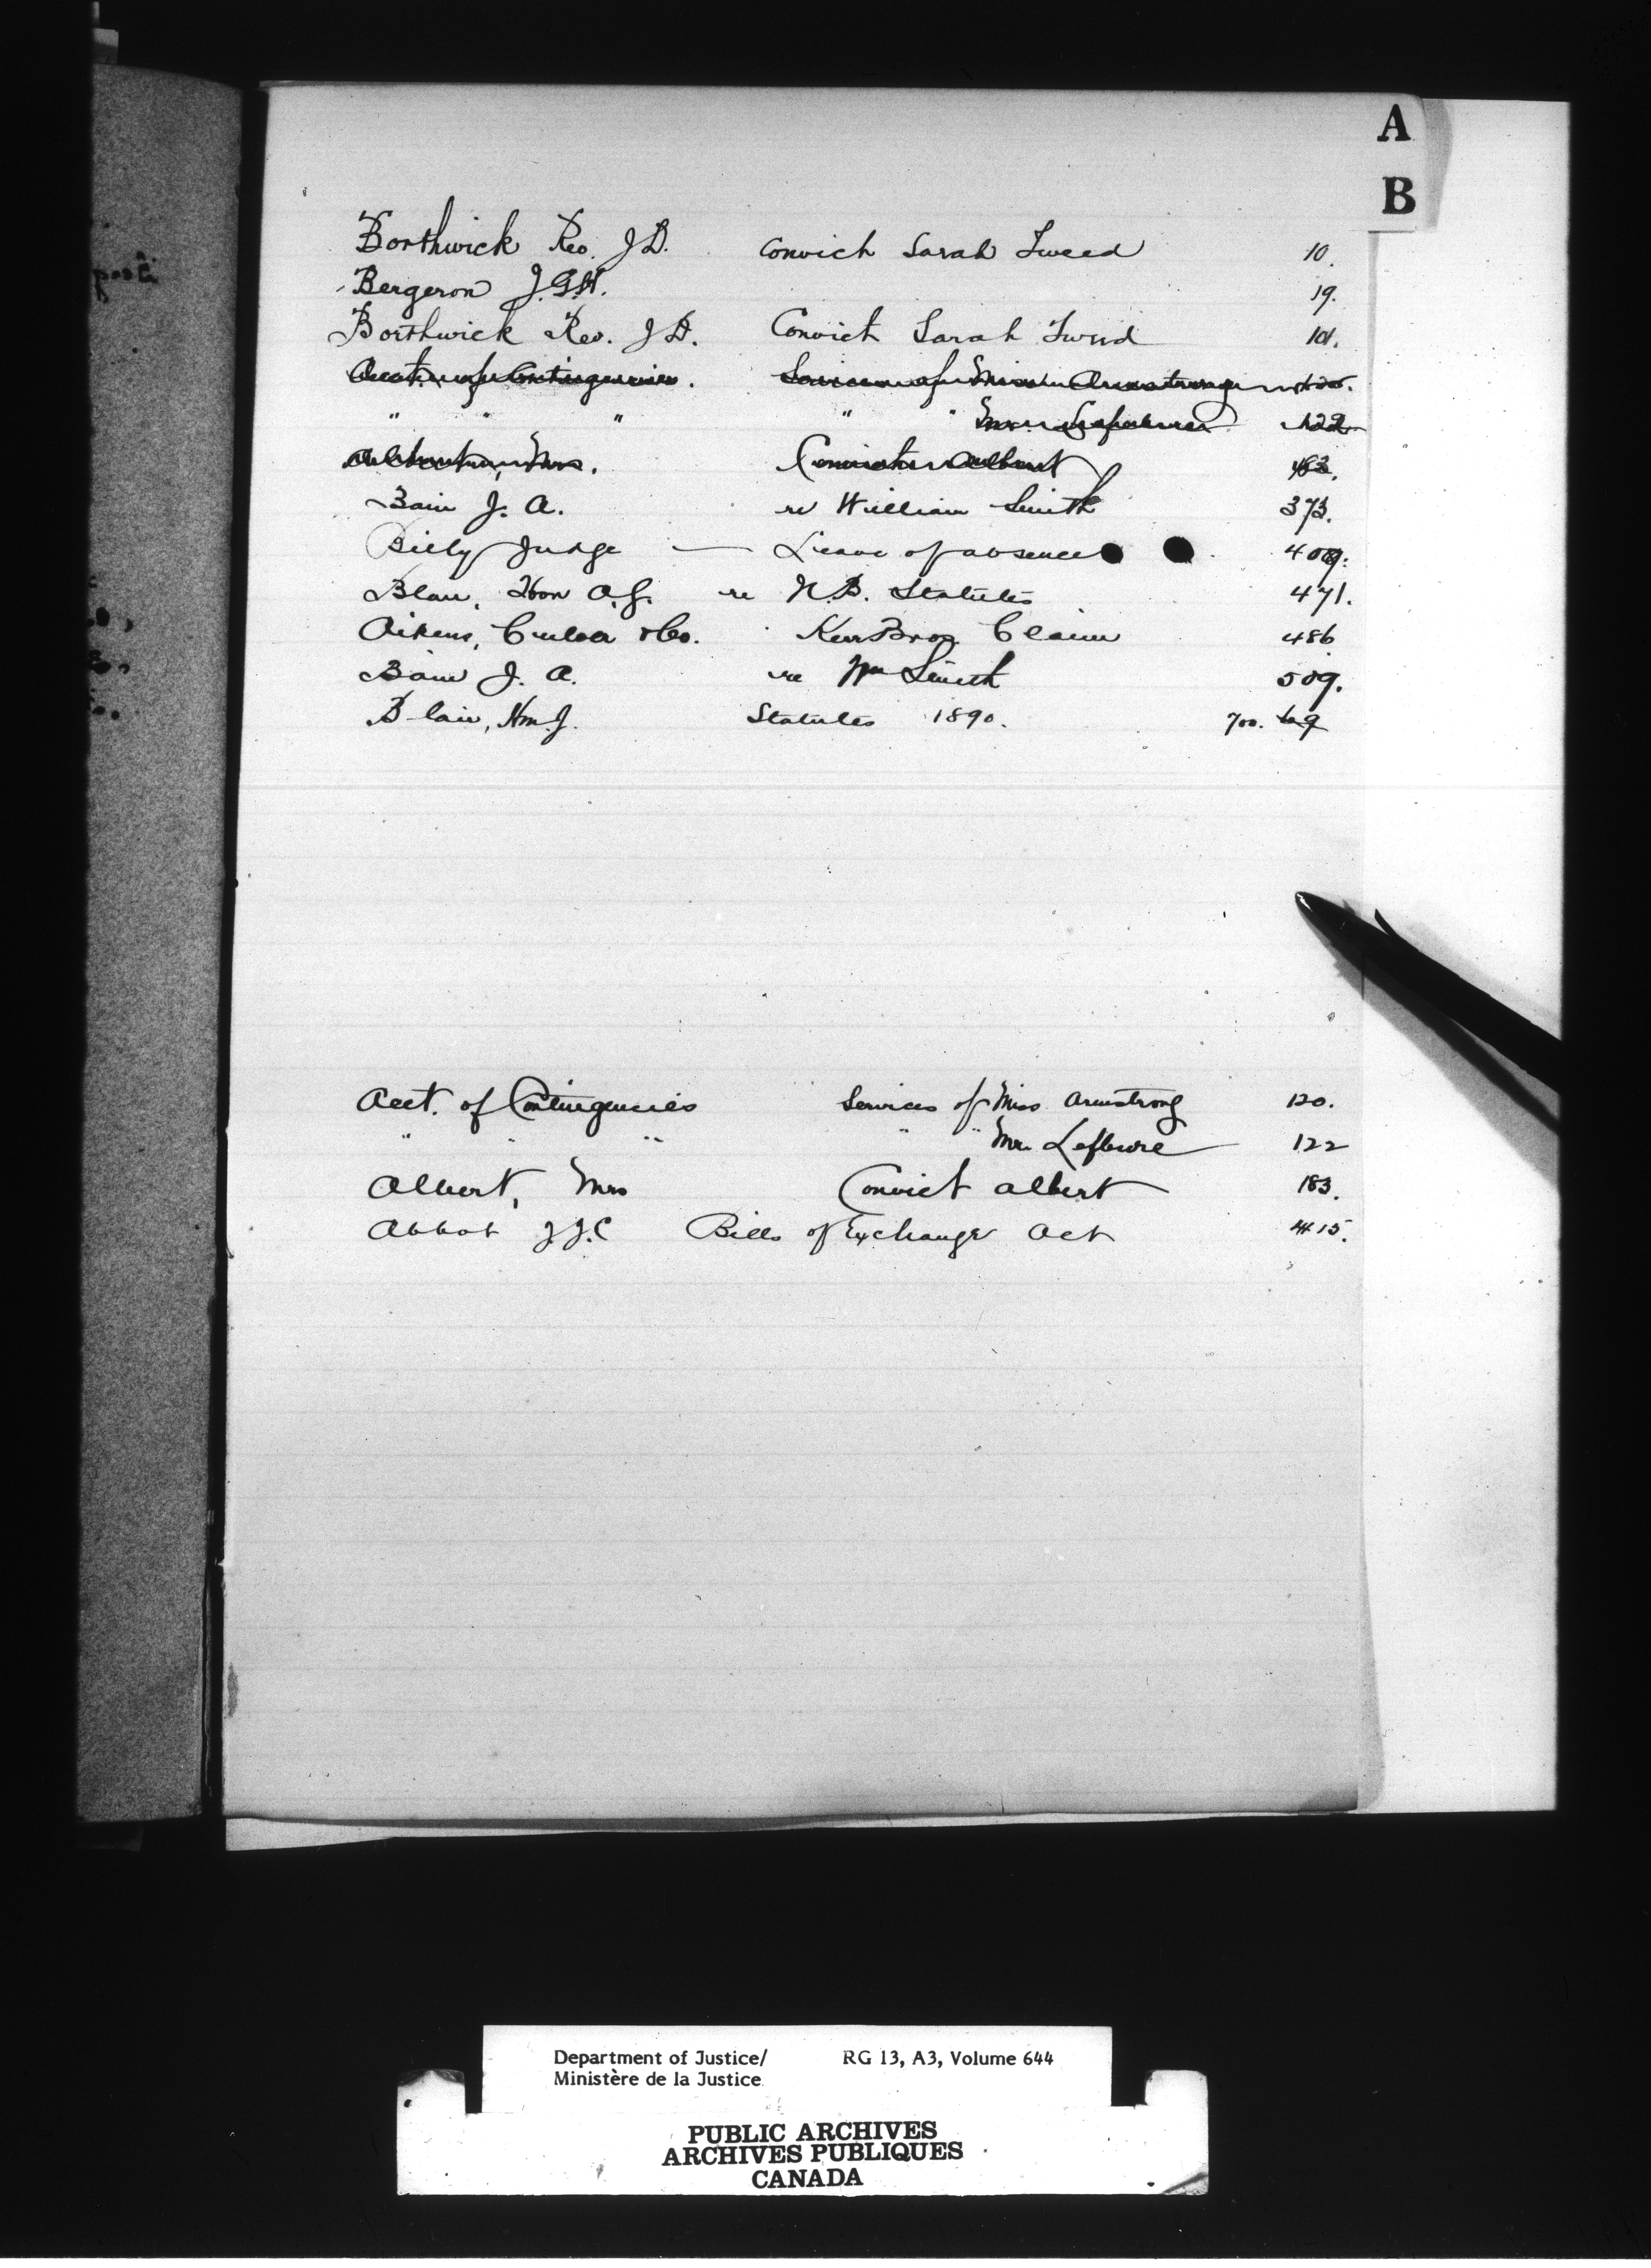 A
B
Borthwick Rev. J D. Convict Sarah Tweed 10.
Bergeron J.G.H. 19.
Borthwick Rev. J D. Convict Sarah Tweed 101.
Acct. of Contingencies. Services of Miss Armstrong 120.
" " " " " Mr. Lefebvre 122
Albert, Mrs. Convict Albert 183.
Bain J. A. re William Smith 373.
Billy Judge — Leave of absence 409.
Blair, Hon A.G. re N.B. Statutes 471.
Aikens, Culver & Co. Kerr Bros. Claim 486
Bain J. A. re Wm Smith 509.
Blair, Hon. J. Statutes 1890. 700.
Acct. of Contingencies Services of Miss Armstrong 120.
" " " " " Mr. Lefebvre 122
Albert, Mrs Convict Albert 183.
Abbot J.J.C Bills of Exchange Act 415.
Department of Justice/ RG 13, A3, Volume 644
Ministère de la Justice
PUBLIC ARCHIVES
ARCHIVES PUBLIQUES
CANADA